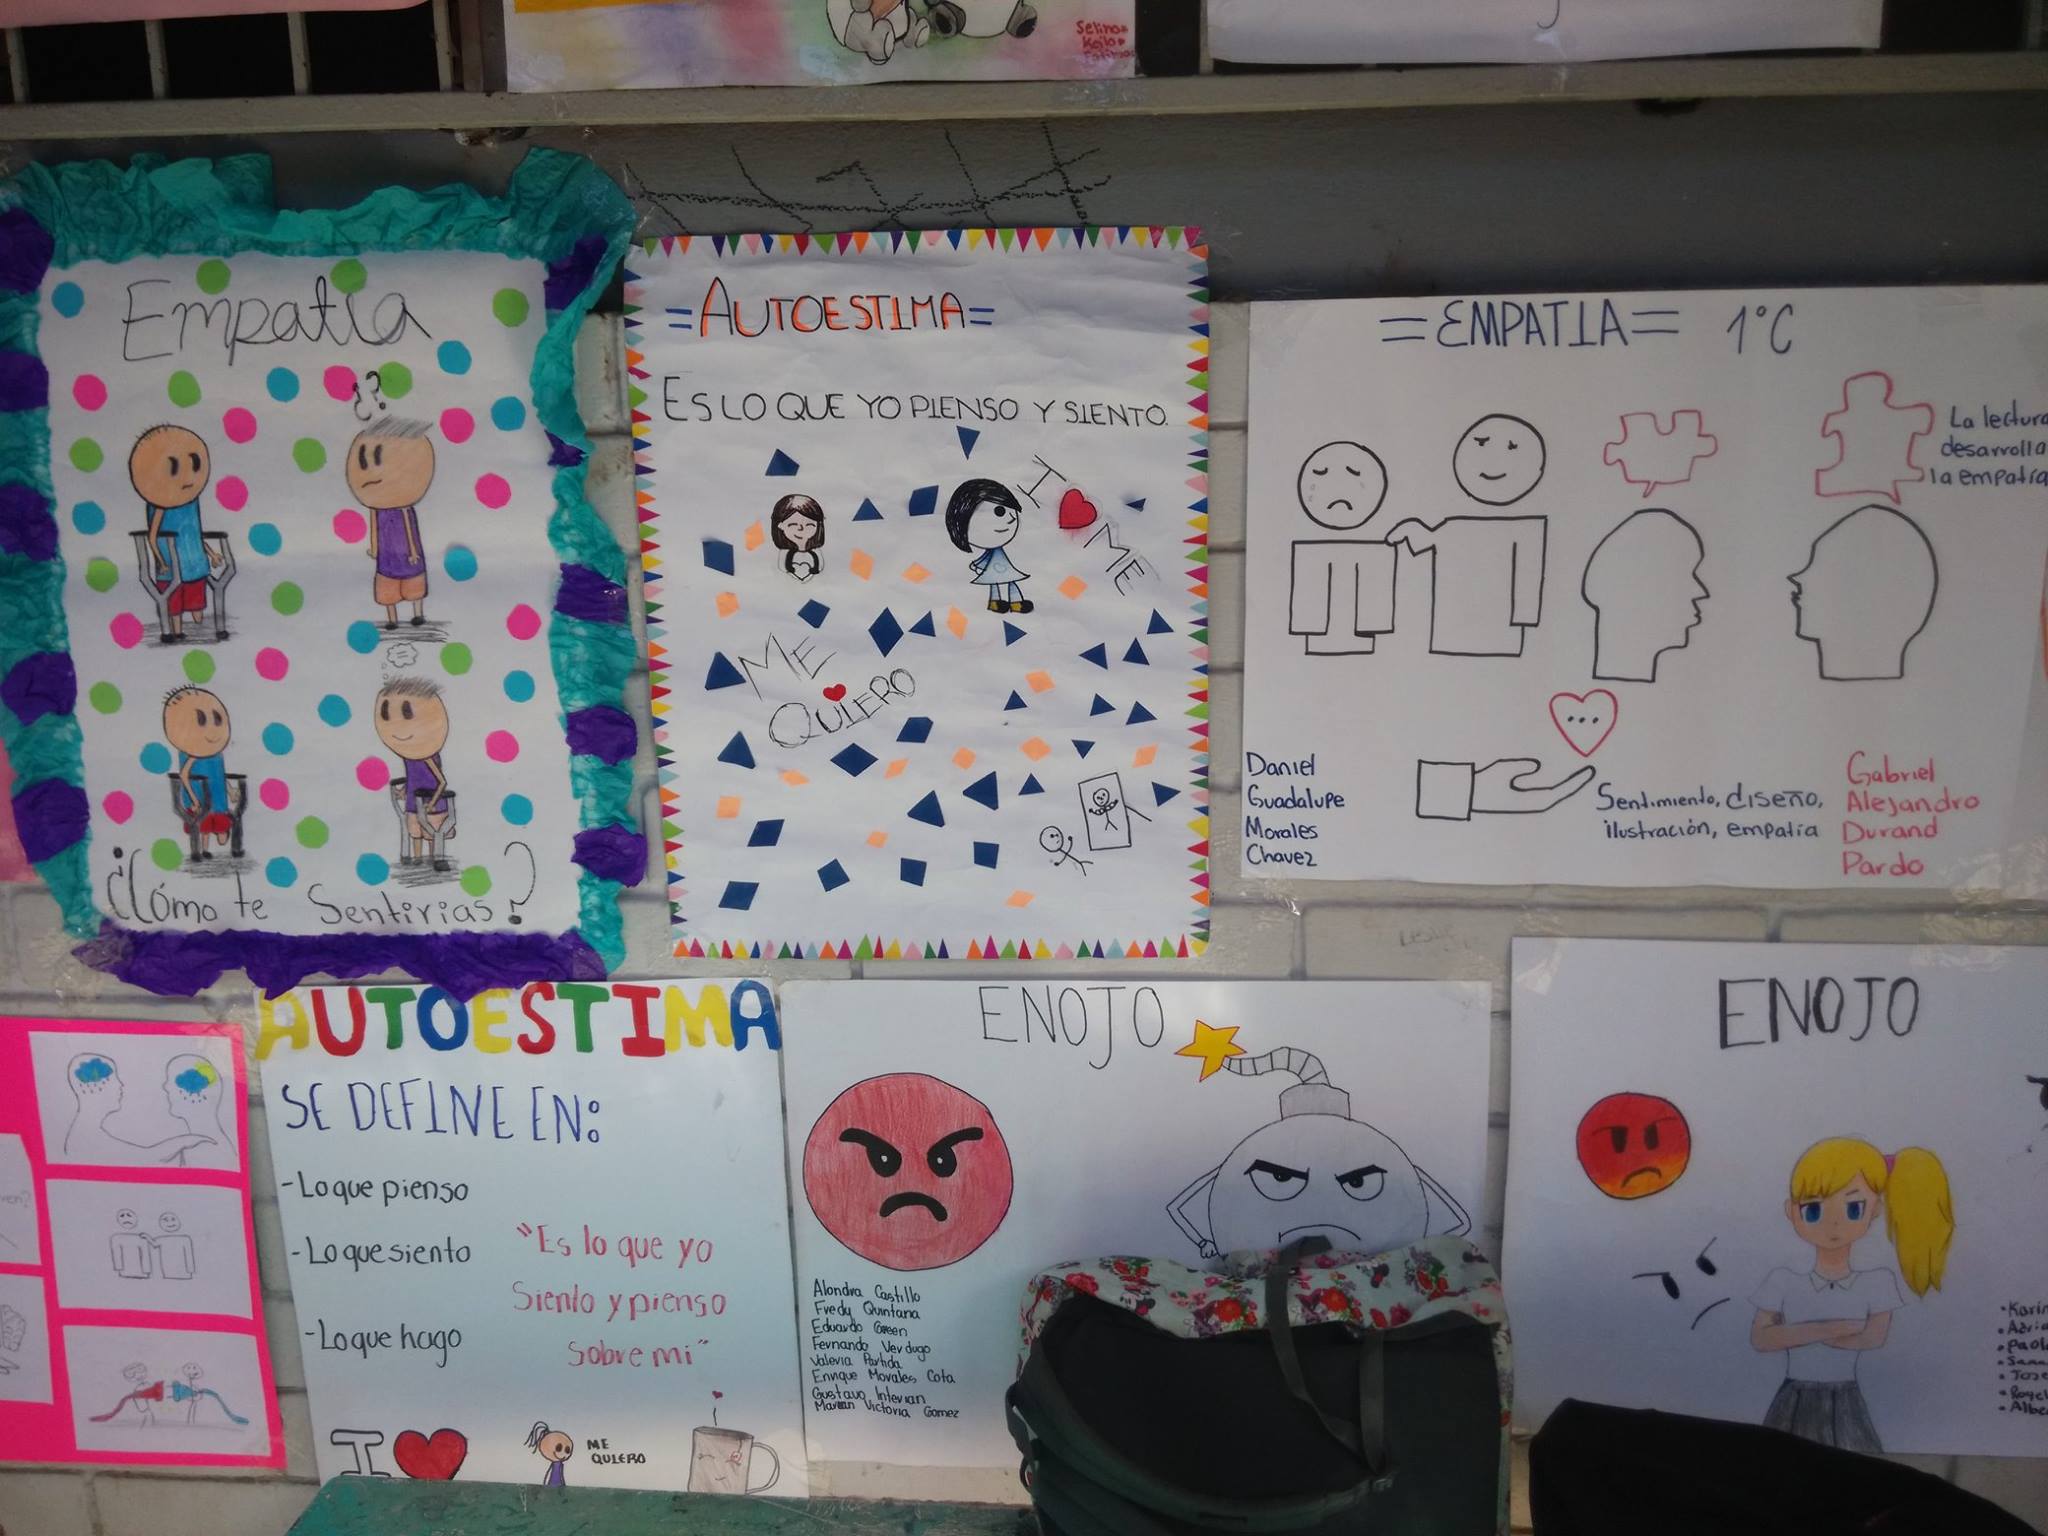 Selina
Empatía
¿?
¿Cómo te Sentirias?
=AUTOESTIMA=
ES LO QUE YO PIENSO Y SIENTO.
I ♥ ME
ME
QUIERO
=EMPATIA= 1°C
La lectura
desarrolla
la empatía
Daniel
Guadalupe
Morales
Chavez
Sentimiento, diseño,
ilustración, empatía
Gabriel
Alejandro
Durand
Pardo
AUTOESTIMA
SE DEFINE EN:
-Lo que pienso
-Lo que siento
-Lo que hago
"Es lo que yo
Siento y pienso
Sobre mi"
I
ME
QUIERO
ENOJO
Alondra Castillo
Fredy Quintana
Eduardo Green
Fernando Verdugo
Valeria Partida
Enrique Morales Cota
Gustavo
Victoria Gomez
ENOJO